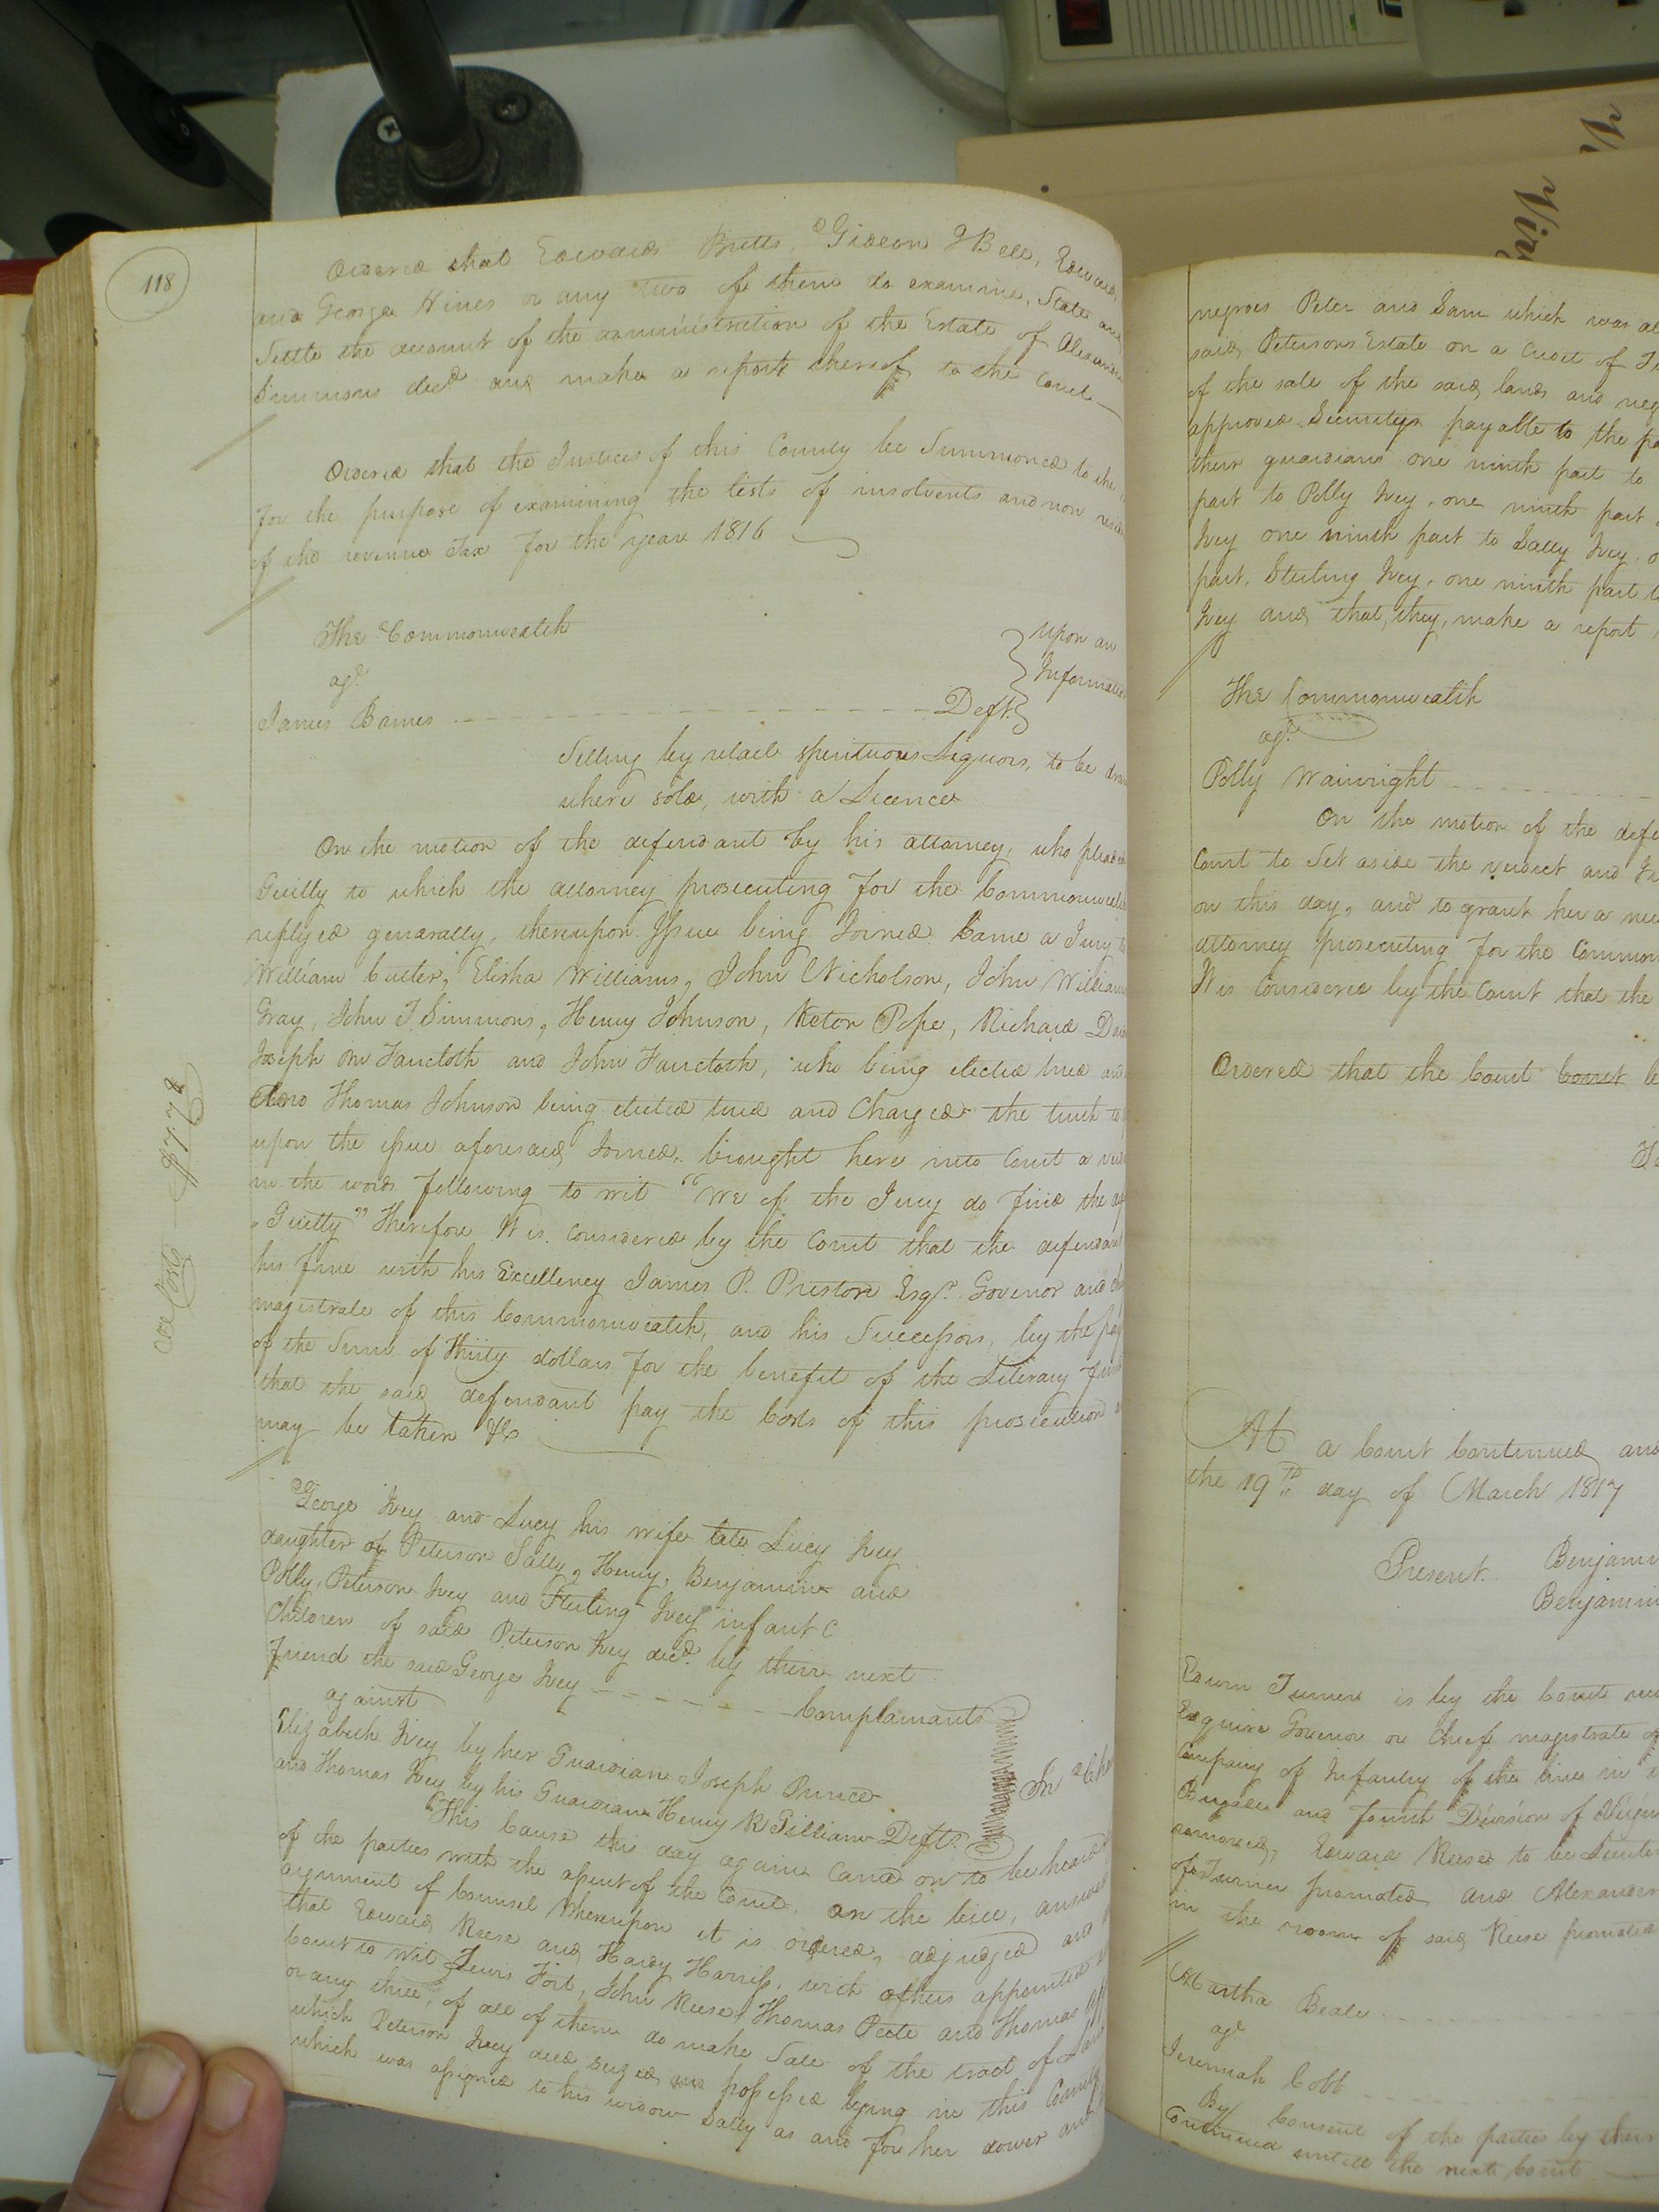 118
Ordered that Edward Butts, Gideon J Bell, Edward
and George Hines or any two of them do examine, State and
Settle the account of the administration of the Estate of Alexander
Simmons decd and make a report thereof to the Court
Ordered that the Justices of this County be Summoned to the
for the purpose of examining the lists of insolvents and non
of the revenue Tax for the year 1816
The Commonwealth
agt
James Barnes Deft
Upon an
Information
Selling by retail spirituous Liquors, to be
where sold, with a Licence
On the motion of the defendant by his attorney, who pleaded
Guilty to which the attorney prosecuting for the Commonwealth
replyed generally, thereupon Issue being Joined Came a Jury to
William Cutler, Elisha Williams, John Nicholson, John William
Gray, John T Simmons, Henry Johnson, Pope, Richard
Joseph and John who being elected tried and
Thomas Johnson being elected tried and Charged the truth to
upon the issue aforesaid Joined, brought here into Court a
in the words following to wit "We of the Jury do find the
"Guilty" Therefore It is considered by the Court that the defendant
his fine with his Excellency James P. Preston Esqr. Govenor and
magistrate of this Commonwealth, and his Successors, by the
of the Sum of Thirty dollars for the benefit of the Literary fund
that the said defendant pay the Costs of this prosecution
may be taken &c
Costs $7.72
George Ivey and Lucy his wife late Lucy Ivey
daughter of Peterson Sally, Henry, Benjamin and
Polly, Peterson Ivey and Sterling Ivey infant
Children of said Peterson Ivey decd. by their next
friend the said George Ivey Complainants
against
Elizabeth Ivey by her Guardian Joseph Prince
and Thomas Ivey by his Guardian Henry R Pilliam Defts
In
This Cause this day again Came on to be heard
of the parties with the assent of the Court, on the bill, answer
argument of Counsel Whereupon it is ordered, adjudged and
that Edward Reese and Hardy Harriss, with others appointed
Court to wit Lewis Fort, John Reese, Thomas Peete and Thomas
or any three, of all of them do make Sale of the tract of Land
which Peterson Ivey died seized and possessed lying in this County
which was assigned to his widow Sally as and for her dower and
negroes Peter and Sam which was
said Petersons Estate on a Credit of
of the sale of the said lands and
approved Securitys payable to the
their guardians one ninth part to
part to Polly Ivey, one ninth part
Ivey one ninth part to Sally Ivey,
part, Sterling Ivey, one ninth part
Ivey and that, they, make a report
The Commonwealth
agt
Polly Wainright
On the motion of the
Court to Set aside the verdict and
on this day, and to grant her a
attorney prosecuting for the
It is Considered by the Court that the
Ordered that the Court Court
At a Court Continued and
the 19th day of March 1817
Present
Benjamin
Benjamin
Edwin Turner is by the Court
Esquire Govenor or Chief magistrate
Company of Infantry of the line in
Brigade and fourth Division of
removed, Edward Reese to be
of Turner promoted and Alexander
in the room of said Reese promoted
Martha Beale
agt
Jeremiah Cobb
By Consent of the parties by their
Continued untill the next Court